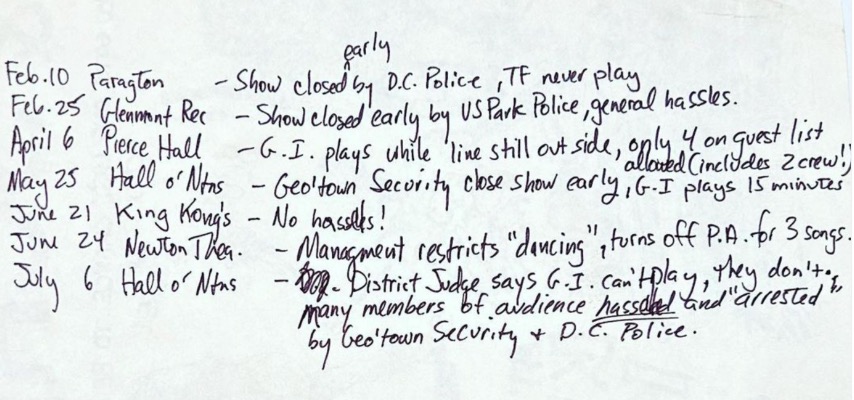 early
Feb.10 Paragton - Show closed ^ by D.C. Police, TF never play
Feb.25 Glenmont Rec - Show closed early by US Park Police, general hassles.
April 6 Pierce Hall - G.I. plays while line still outside, only 4 on guest list
allowed (includes 2 crew!)
May 25 Hall o' Ntns - Geo'town Security close show early, G.I plays 15 minutes
June 21 King Kong's - No hassles!
June 24 Newton Thea. - Managment restricts "dancing", turns off P.A. for 3 songs.
July 6 Hall o' Ntns - District Judge says G.I. can't play, they don't,
many members of audience hassled and "arrested"
by Geo'town Security + D.C. Police.